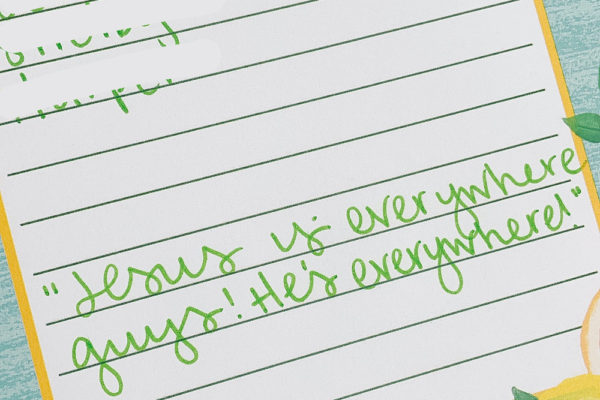 "Jesus is everywhere
guys! He's everywhere!"